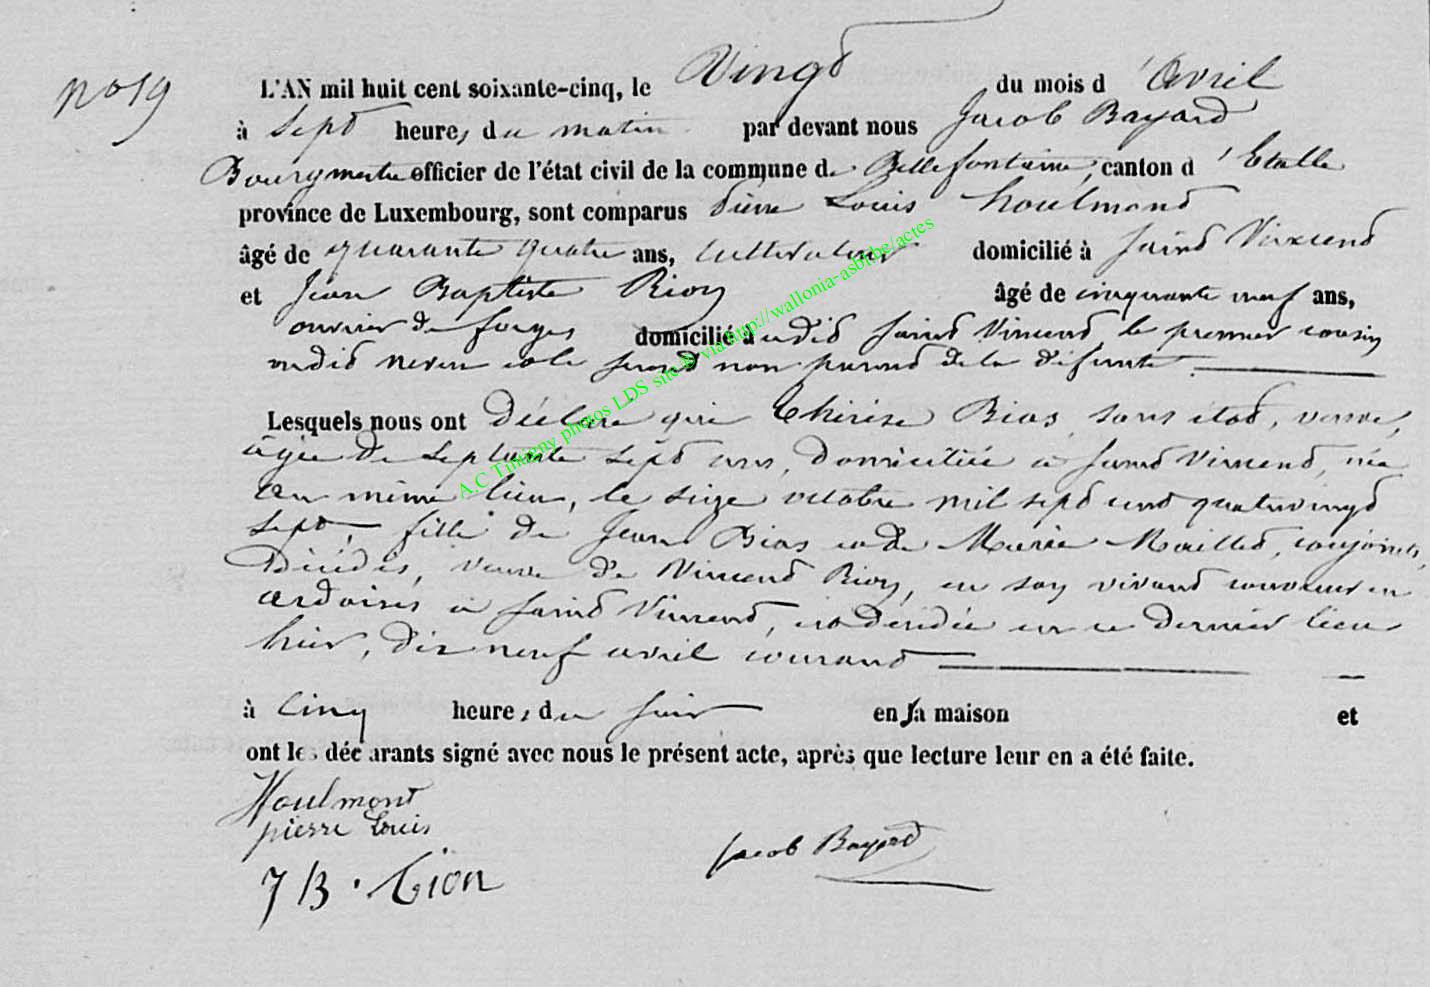 N° 19
L'AN mil huit cent soixante-cinq, le Vingt du mois d'Avril
à Sept heures du matin par devant nous Jacob Bayard
Bourgmestre officier de l'état civil de la commune de Bellefontaine, canton d'Etalle
province de Luxembourg, sont comparus Pierre Louis houlmont
âgé de quarante quatre ans, cultivateur domicilié à Saint Vincent
et Jean Baptiste Rion âgé de cinquante neuf ans,
ouvrier de forges domicilié audit Saint Vincent le premier cousin
neveu et le second non parent de la défunte
Lesquels nous ont Déclaré que Thérèse Bias, sans état, veuve,
âgée de septante sept ans, domiciliée à Saint Vincent, née
au même lieu, le seize octobre mil sept cent quatrevingt
sept, fille de Jean Bias et de Marie Maillet, conjoints,
Décédés, veuve de Vincent Rion, en son vivant couvreur en
ardoises à Saint Vincent, est décédée en ce dernier lieu
hier, dix neuf avril courant
à cinq heures du soir en sa maison et
ont les déclarants signé avec nous le présent acte, après que lecture leur en a été faite.
Houlmont
pierre Louis
Jacob Bayard
J B. Rion
A.C Tintigny photos LDS site via http://wallonia-asbl.be/actes